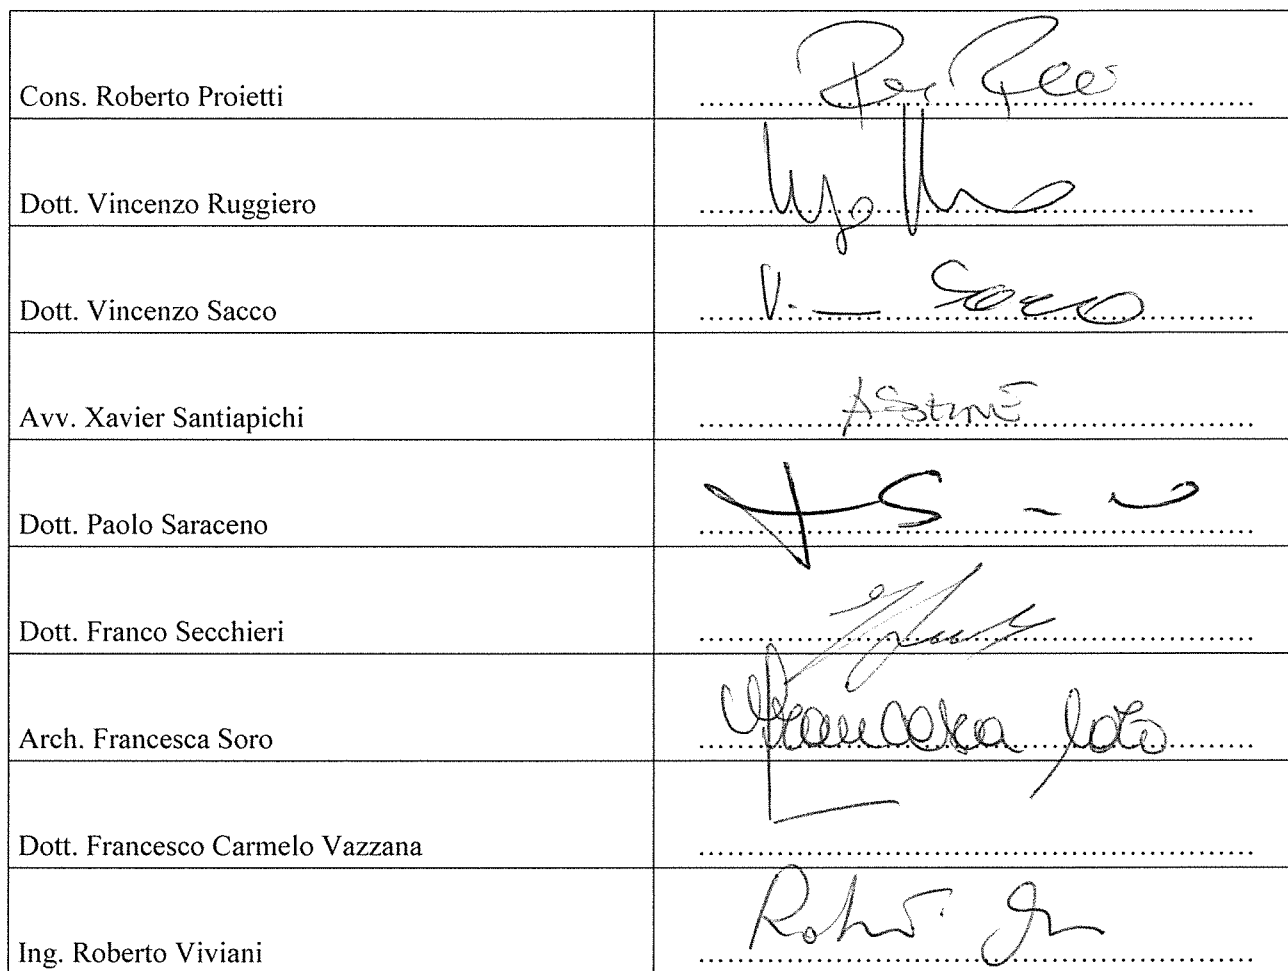 Cons. Roberto Proietti ..........
Dott. Vincenzo Ruggiero ..........
Dott. Vincenzo Sacco .......... V. Sacco
Avv. Xavier Santiapichi .......... ASSENTE
Dott. Paolo Saraceno ..........
Dott. Franco Secchieri ..........
Arch. Francesca Soro .......... Francesca Soro
Dott. Francesco Carmelo Vazzana ..........
Ing. Roberto Viviani ..........